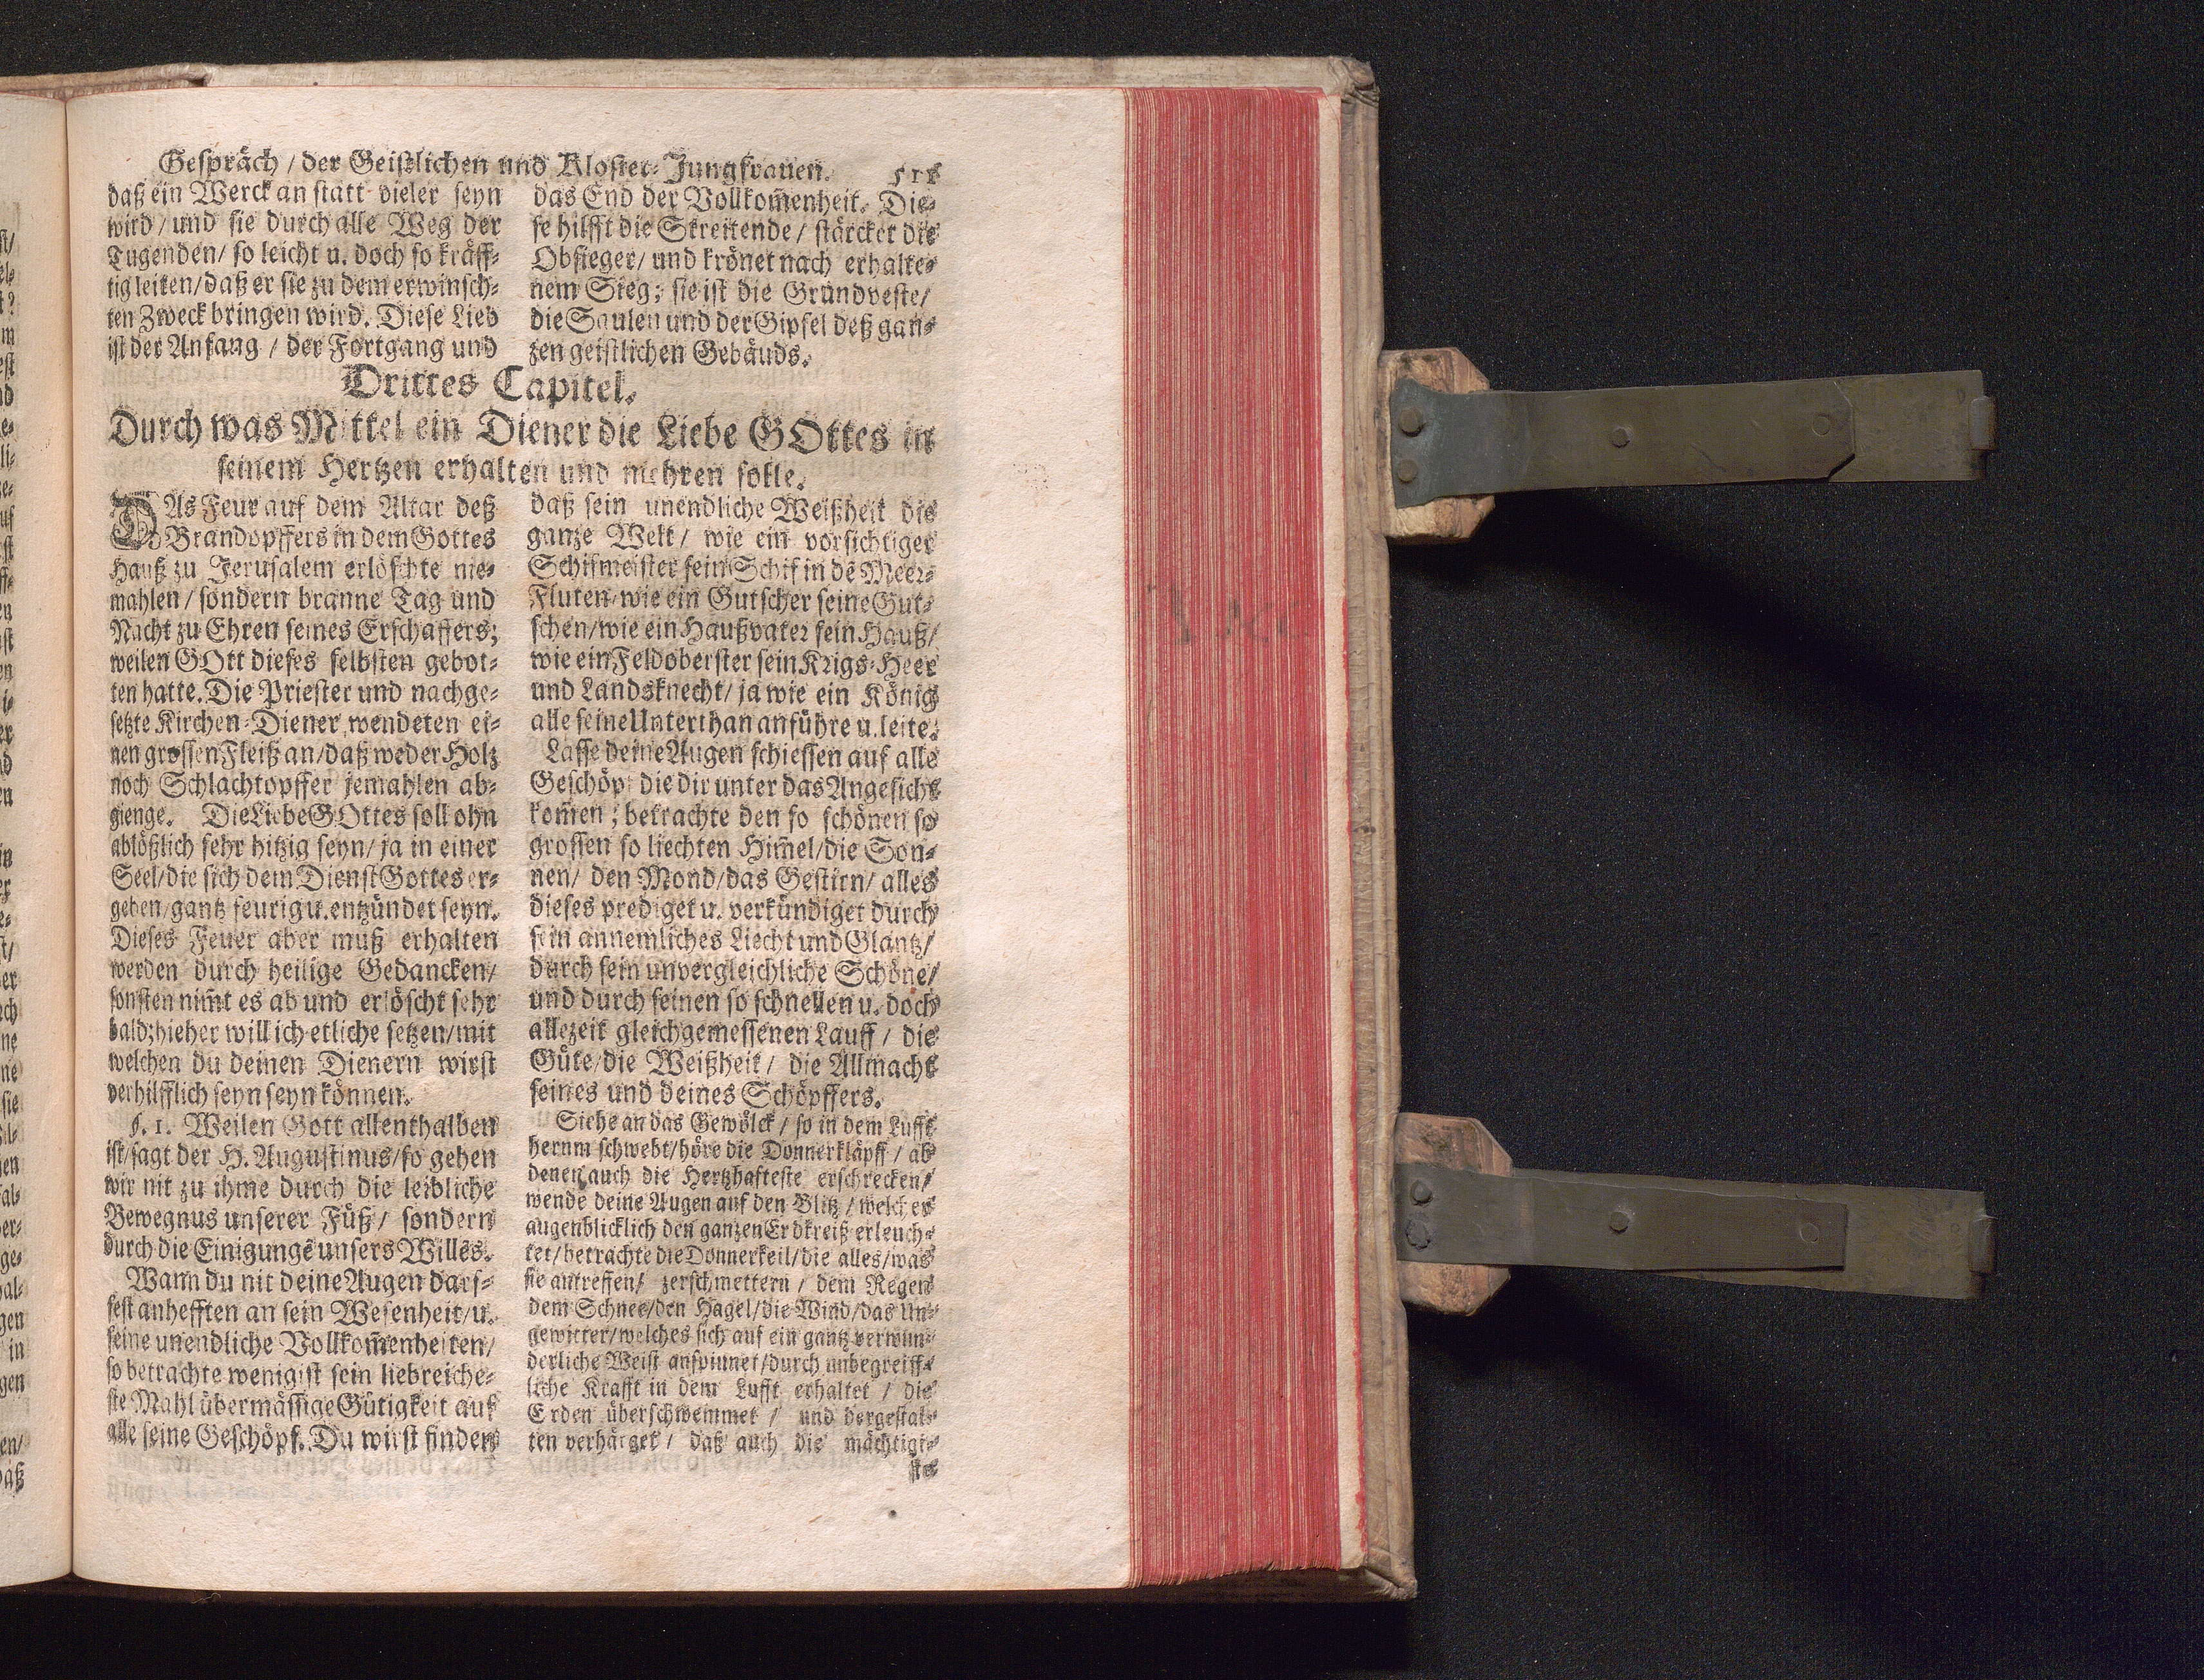 Gespräch / der Geistlichen und Kloster-Jungfrauen. 511
daß ein Werck an statt vieler seyn
wird / und sie durch alle Weg der
Tugenden / so leicht u. doch so kräff-
tig leiten / daß er sie zu dem erwinsch-
ten Zweck bringen wird. Diese Lieb
ist der Anfang / der Fortgang und
das End der Vollkom̃enheit. Die-
se hilfft die Streitende / stärcket die
Obsieger / und krönet nach erhalte-
nem Sieg; sie ist die Grundveste /
die Saulen und der Gipfel deß gan-
zen geistlichen Gebäuds.
Drittes Capitel.
Durch was Mittel ein Diener die Liebe GOttes in
seinem Hertzen erhalten und mehren solle.
DAs Feur auf dem Altar deß
Brandopffers in dem Gottes
Hauß zu Jerusalem erlöschte nie-
mahlen / sondern branne Tag und
Nacht zu Ehren seines Erschaffers;
weilen GOtt dieses selbsten gebot-
ten hatte. Die Priester und nachge-
setzte Kirchen-Diener wendeten ei-
nen grossen Fleiß an / daß weder Holz
noch Schlachtopffer jemahlen ab-
gienge. Die Liebe GOttes soll ohn
ablößlich sehr hitzig seyn / ja in einer
Seel / die sich dem Dienst Gottes er-
geben / gantz feurig u. entzündet seyn.
Dieses Feuer aber muß erhalten
werden durch heilige Gedancken /
sonsten nim̃t es ab und erlöscht sehr
bald; hieher will ich etliche setzen / mit
welchen du deinen Dienern wirst
verhilfflich seyn seyn können.
§. 1. Weilen Gott allenthalben
ist / sagt der H. Augustinus / so gehen
wir nit zu ihme durch die leibliche
Bewegnus unserer Füß / sondern
durch die Einigung unsers Willẽs.
Wann du nit deine Augen darf-
fest anhefften an sein Wesenheit / u.
seine unendliche Vollkom̃enheiten /
so betrachte wenigist sein liebreiche-
ste Mahl übermässige Gütigkeit auf
alle seine Geschöpf. Du wirst finden
daß sein unendliche Weißheit die
ganze Welt / wie ein vorsichtiger
Schifmeister sein Schif in dẽ Meer-
Fluten / wie ein Gutscher seine Gut-
schen / wie ein Haußvater sein Hauß /
wie ein Feldoberster sein Krigs-Heer
und Landsknecht / ja wie ein König
alle seine Unterthan anführe u. leite.
Lasse deine Augen schiessen auf alle
Geschöpf die dir unter das Angesicht
kom̃en; betrachte den so schönen so
grossen so liechten Him̃el / die Son-
nen / den Mond / das Gestirn / alles
dieses prediget u. verkündiget durch
sein annemliches Liecht und Glantz /
durch sein unvergleichliche Schöne /
und durch seinen so schnellen u. doch
allezeit gleichgemessenen Lauff / die
Güte / die Weißheit / die Allmacht
seines und deines Schöpffers.
Siehe an das Gewölck / so in dem Lufft
herum schwebt / höre die Donnerkläpff / ab
denen auch die Hertzhafteste erschrecken /
wende deine Augen auf den Blitz / welcher
augenblicklich den ganzen Erdkreiß erleuch-
tet / betrachte die Donnerkeil / die alles / was
sie antreffen / zerschmettern / dem Regen
dem Schnee / den Hagel / die Wind / das Un-
gewitter / welches sich auf ein gantz verwun-
derliche Weiß anspinnet / durch unbegreiff-
liche Krafft in dem Lufft erhaltet / die
Erden überschwemmet / und dergestal-
ten verhärget / daß auch die mächtigi-
ste